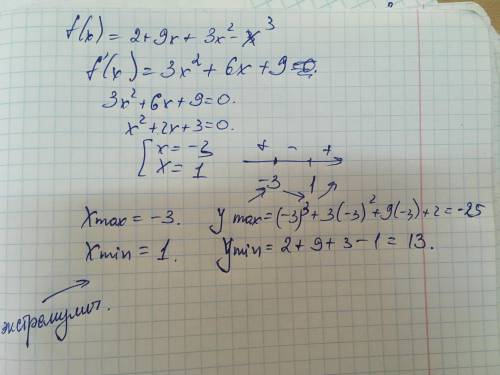 f(x) = 2 + 9x + 3x² - x³
f'(x) = 3x² + 6x + 9 = 0.
3x² + 6x + 9 = 0.
x² + 2x + 3 = 0.
[ x = -3
x = 1
+ - +
-3 1
Xmax = -3. Ymax = (-3)³ + 3(-3)² + 9(-3) + 2 = -25
Xmin = 1. Ymin = 2 + 9 + 3 - 1 = 13.
экстремумы.